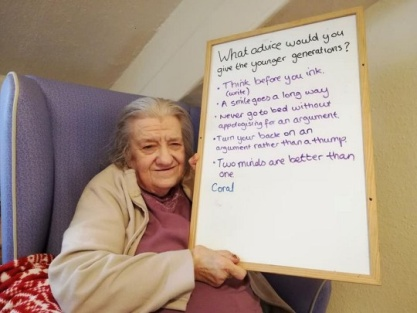 What advice would you
give the younger generations?
• Think before you ink.
(write)
• A smile goes a long way
• Never go to bed without
appologising for an argument
• Turn your back on an
argument rather than a thump
• Two minds are better than
one
Coral